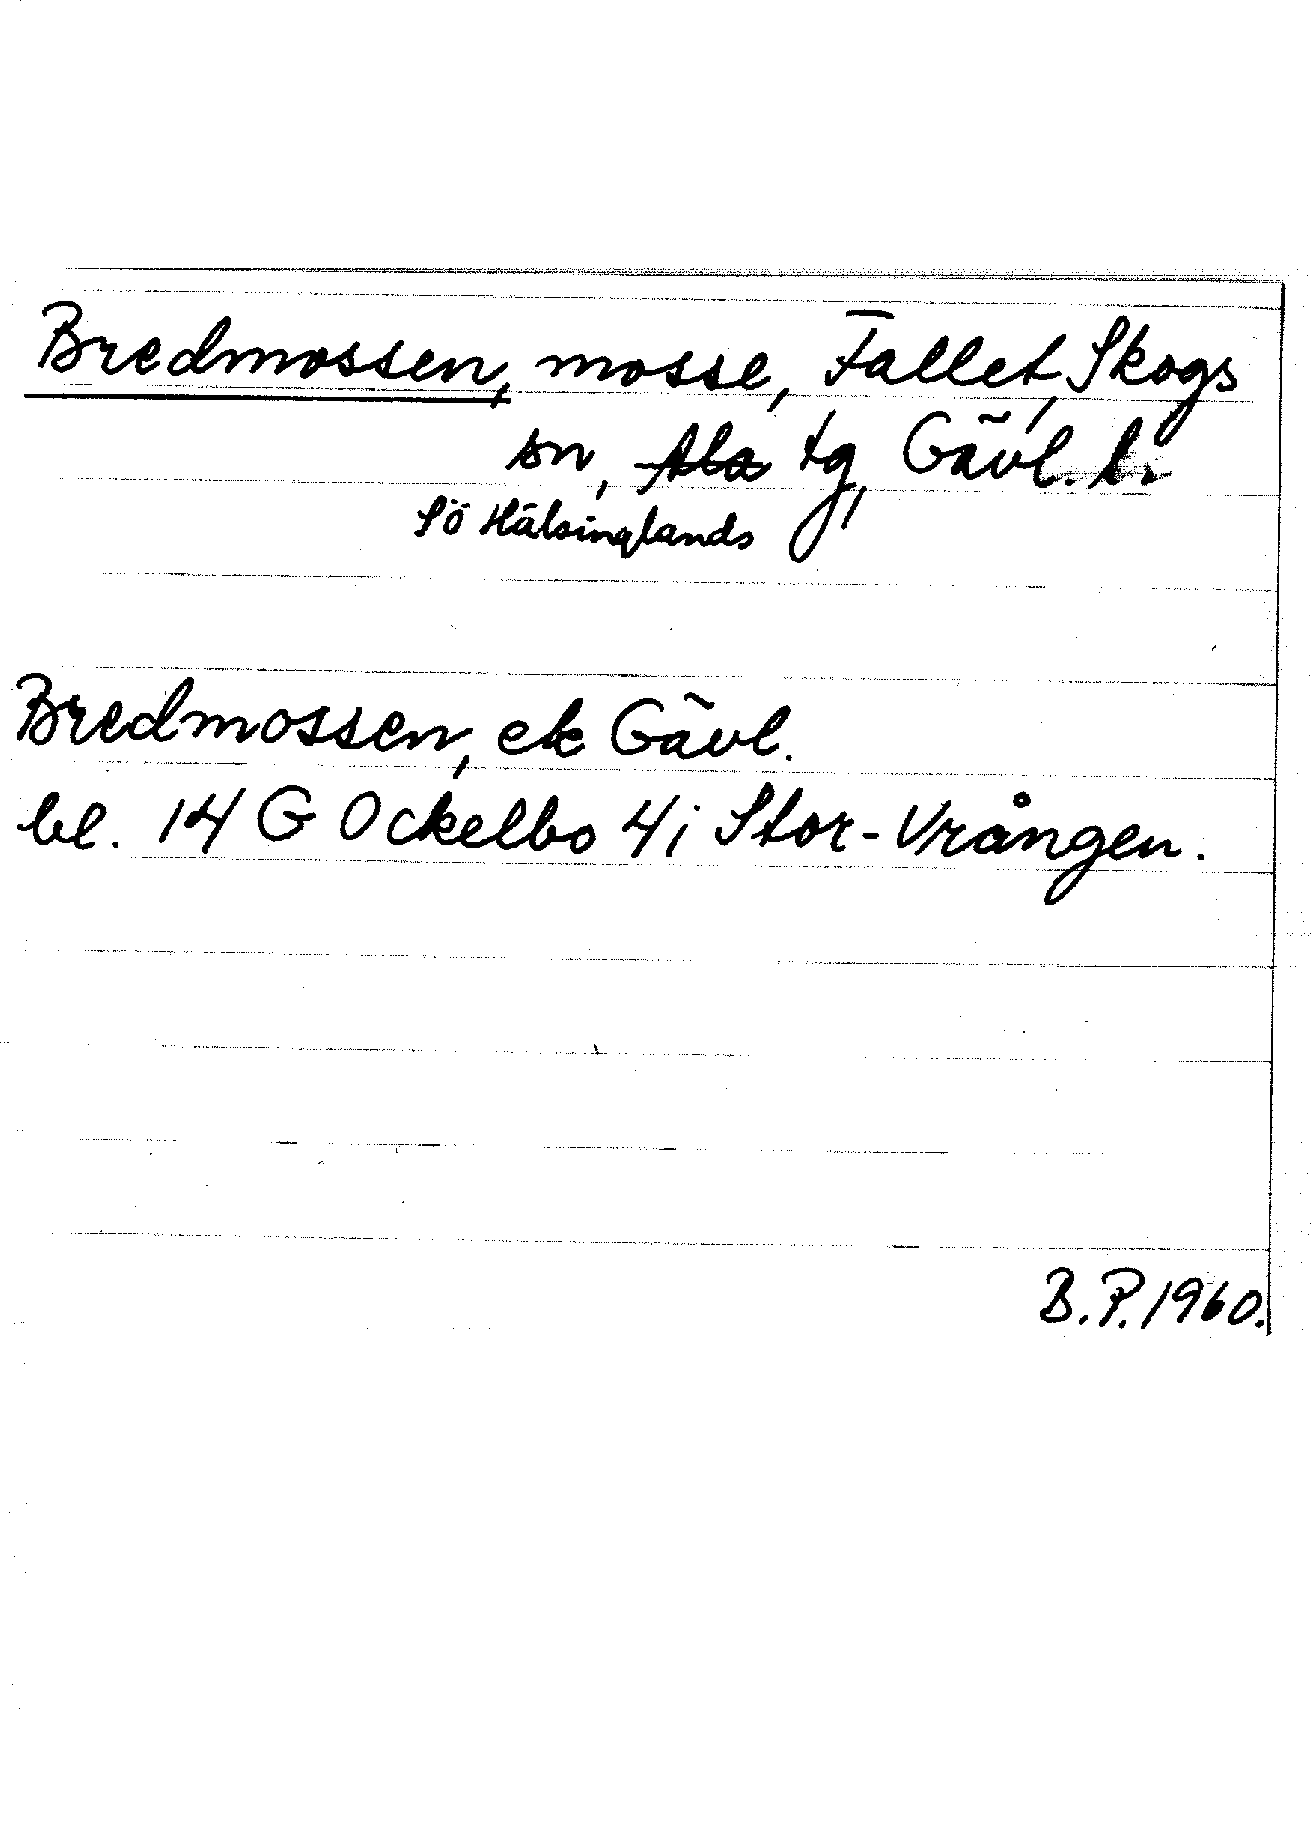 Bredmossen, mosse, Fallet, Skogs
sn, Ala tg, Gävl. l.
Sö Hälsinglands
Bredmossen, ek Gävl.
bl. 14 G Ockelbo 4i Stor-Vrången.
B.P. 1960.